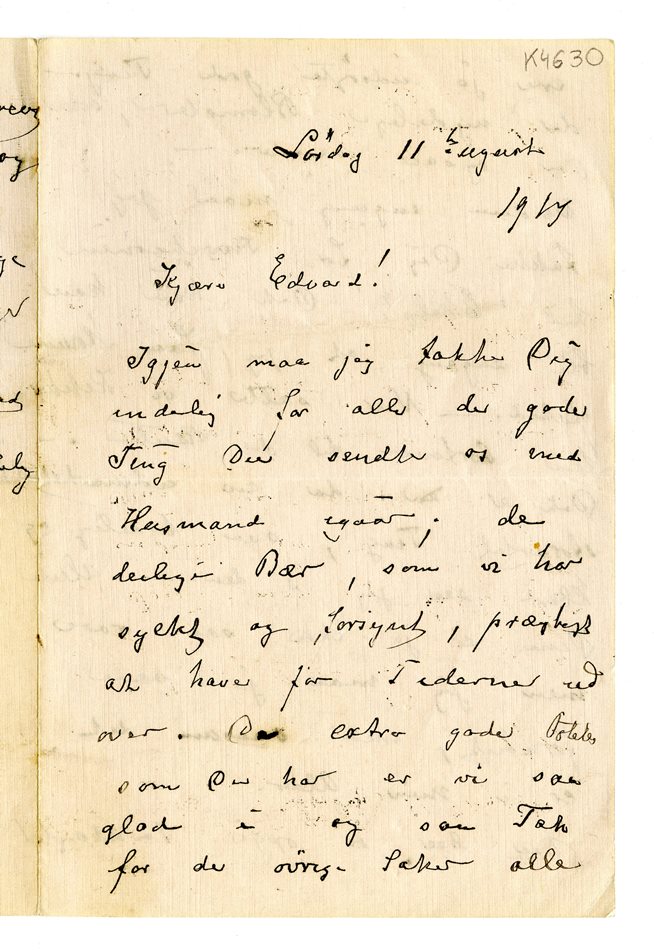 K4630
Lördag 11 August
1917
Kjære Edvard!
Igjen maa jeg takke Dig
inderlig for alle de gode
Ting Du sendte os med
Husmand igaar; de
deilige Bær, som vi har
syltet og forsynt, prægtigt
at have for Tiderne ud
over. De extra gode Poteter
som Du har er vi saa
glad i og saa Tak
for de övrige Saker alle